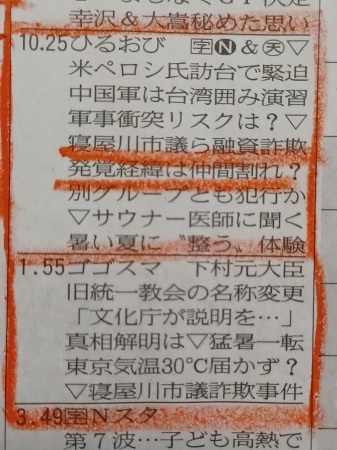 幸沢&大嵩秘めた思い
10.25ひるおび 字N&天▽
米ペロシ氏訪台で緊迫
中国軍は台湾囲み演習
軍事衝突リスクは?▽
寝屋川市議ら融資詐欺
発覚経緯は仲間割れ?
別グループとも犯行か
▽サウナー医師に聞く
暑い夏に〝整う〟体験
1.55ゴゴスマ 下村元大臣
旧統一教会の名称変更
「文化庁が説明を…」
真相解明は▽猛暑一転
東京気温30℃届かず?
▽寝屋川市議詐欺事件
3.49字Nスタ
第7波…子ども高熱で